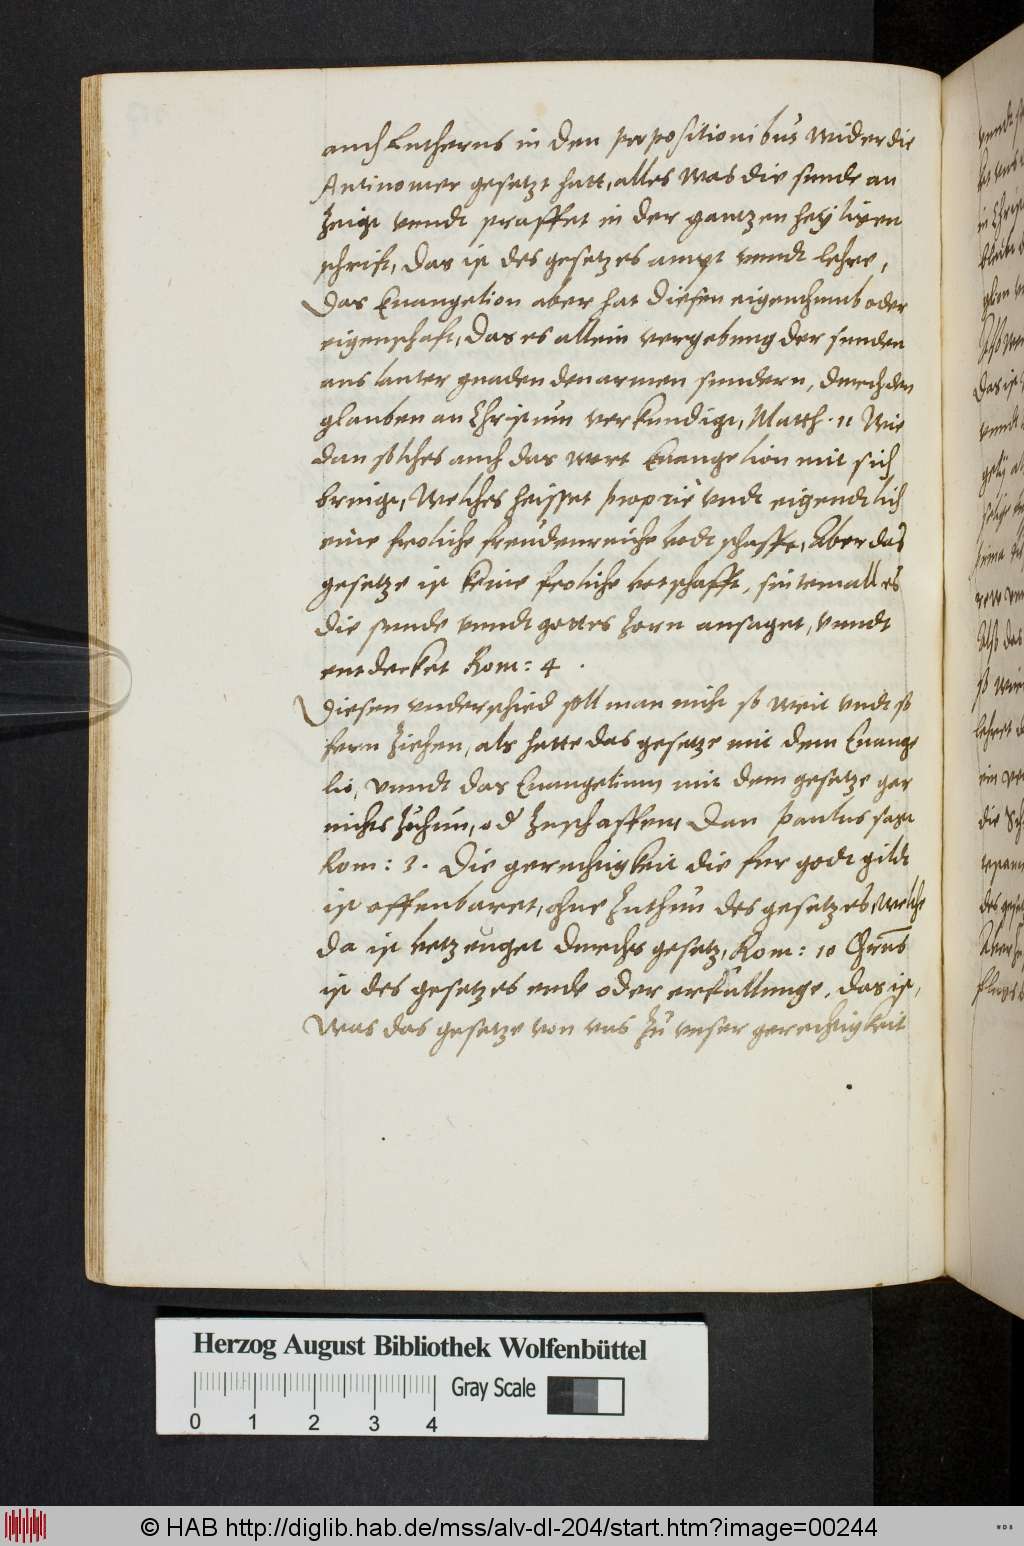 auch Lutherus in den propositionibus wider die
Antinomer gesatzt hatt, alles was die sunde an
zeigt vnndt straffet in der gantzen heyligen
schrift, das ist des gesetzes ampt vnndt lehre,
Das Euangelion aber hat diesen eigenthumb oder
eigenschaft, das es allein vergebung der sunden
aus lauter gnaden den armen sundern, durch den
glauben an Christum verkundigt, Matth. 11 Wie
dan solches auch das wort Euangelion mit sich
bringt, Welches heisset proprie vndt eigendtlich
eine froliche freudenreiche bodtschafft, Aber das
gesetze ist keine froliche botschafft, sintemall es
die sunde vnndt gottes zorn ansaget, vnndt
entdecket Rom: 4.
Diesen vnderschied soll man nicht so weit vndt so
fern ziehen, als hette das gesetze mit dem Euange
lio, vnndt das Euangelium mit dem gesetze gar
nichts zuthun, od zuschaffen, Dan Paulus sagt
Rom: 3. Die gerechtigkeit die fur godt gildt
ist offenbaret, ohne zuthun des gesetzes, welche
da ist betzeuget durchs gesetz, Rom: 10 Chrus
ist des gesetzes ende oder erfullunge, das ist,
Was das gesetze von vns zu vnser gerechtigkeit
Herzog August Bibliothek Wolfenbüttel
Gray Scale
0 1 2 3 4
© HAB http://diglib.hab.de/mss/alv-dl-204/start.htm?image=00244